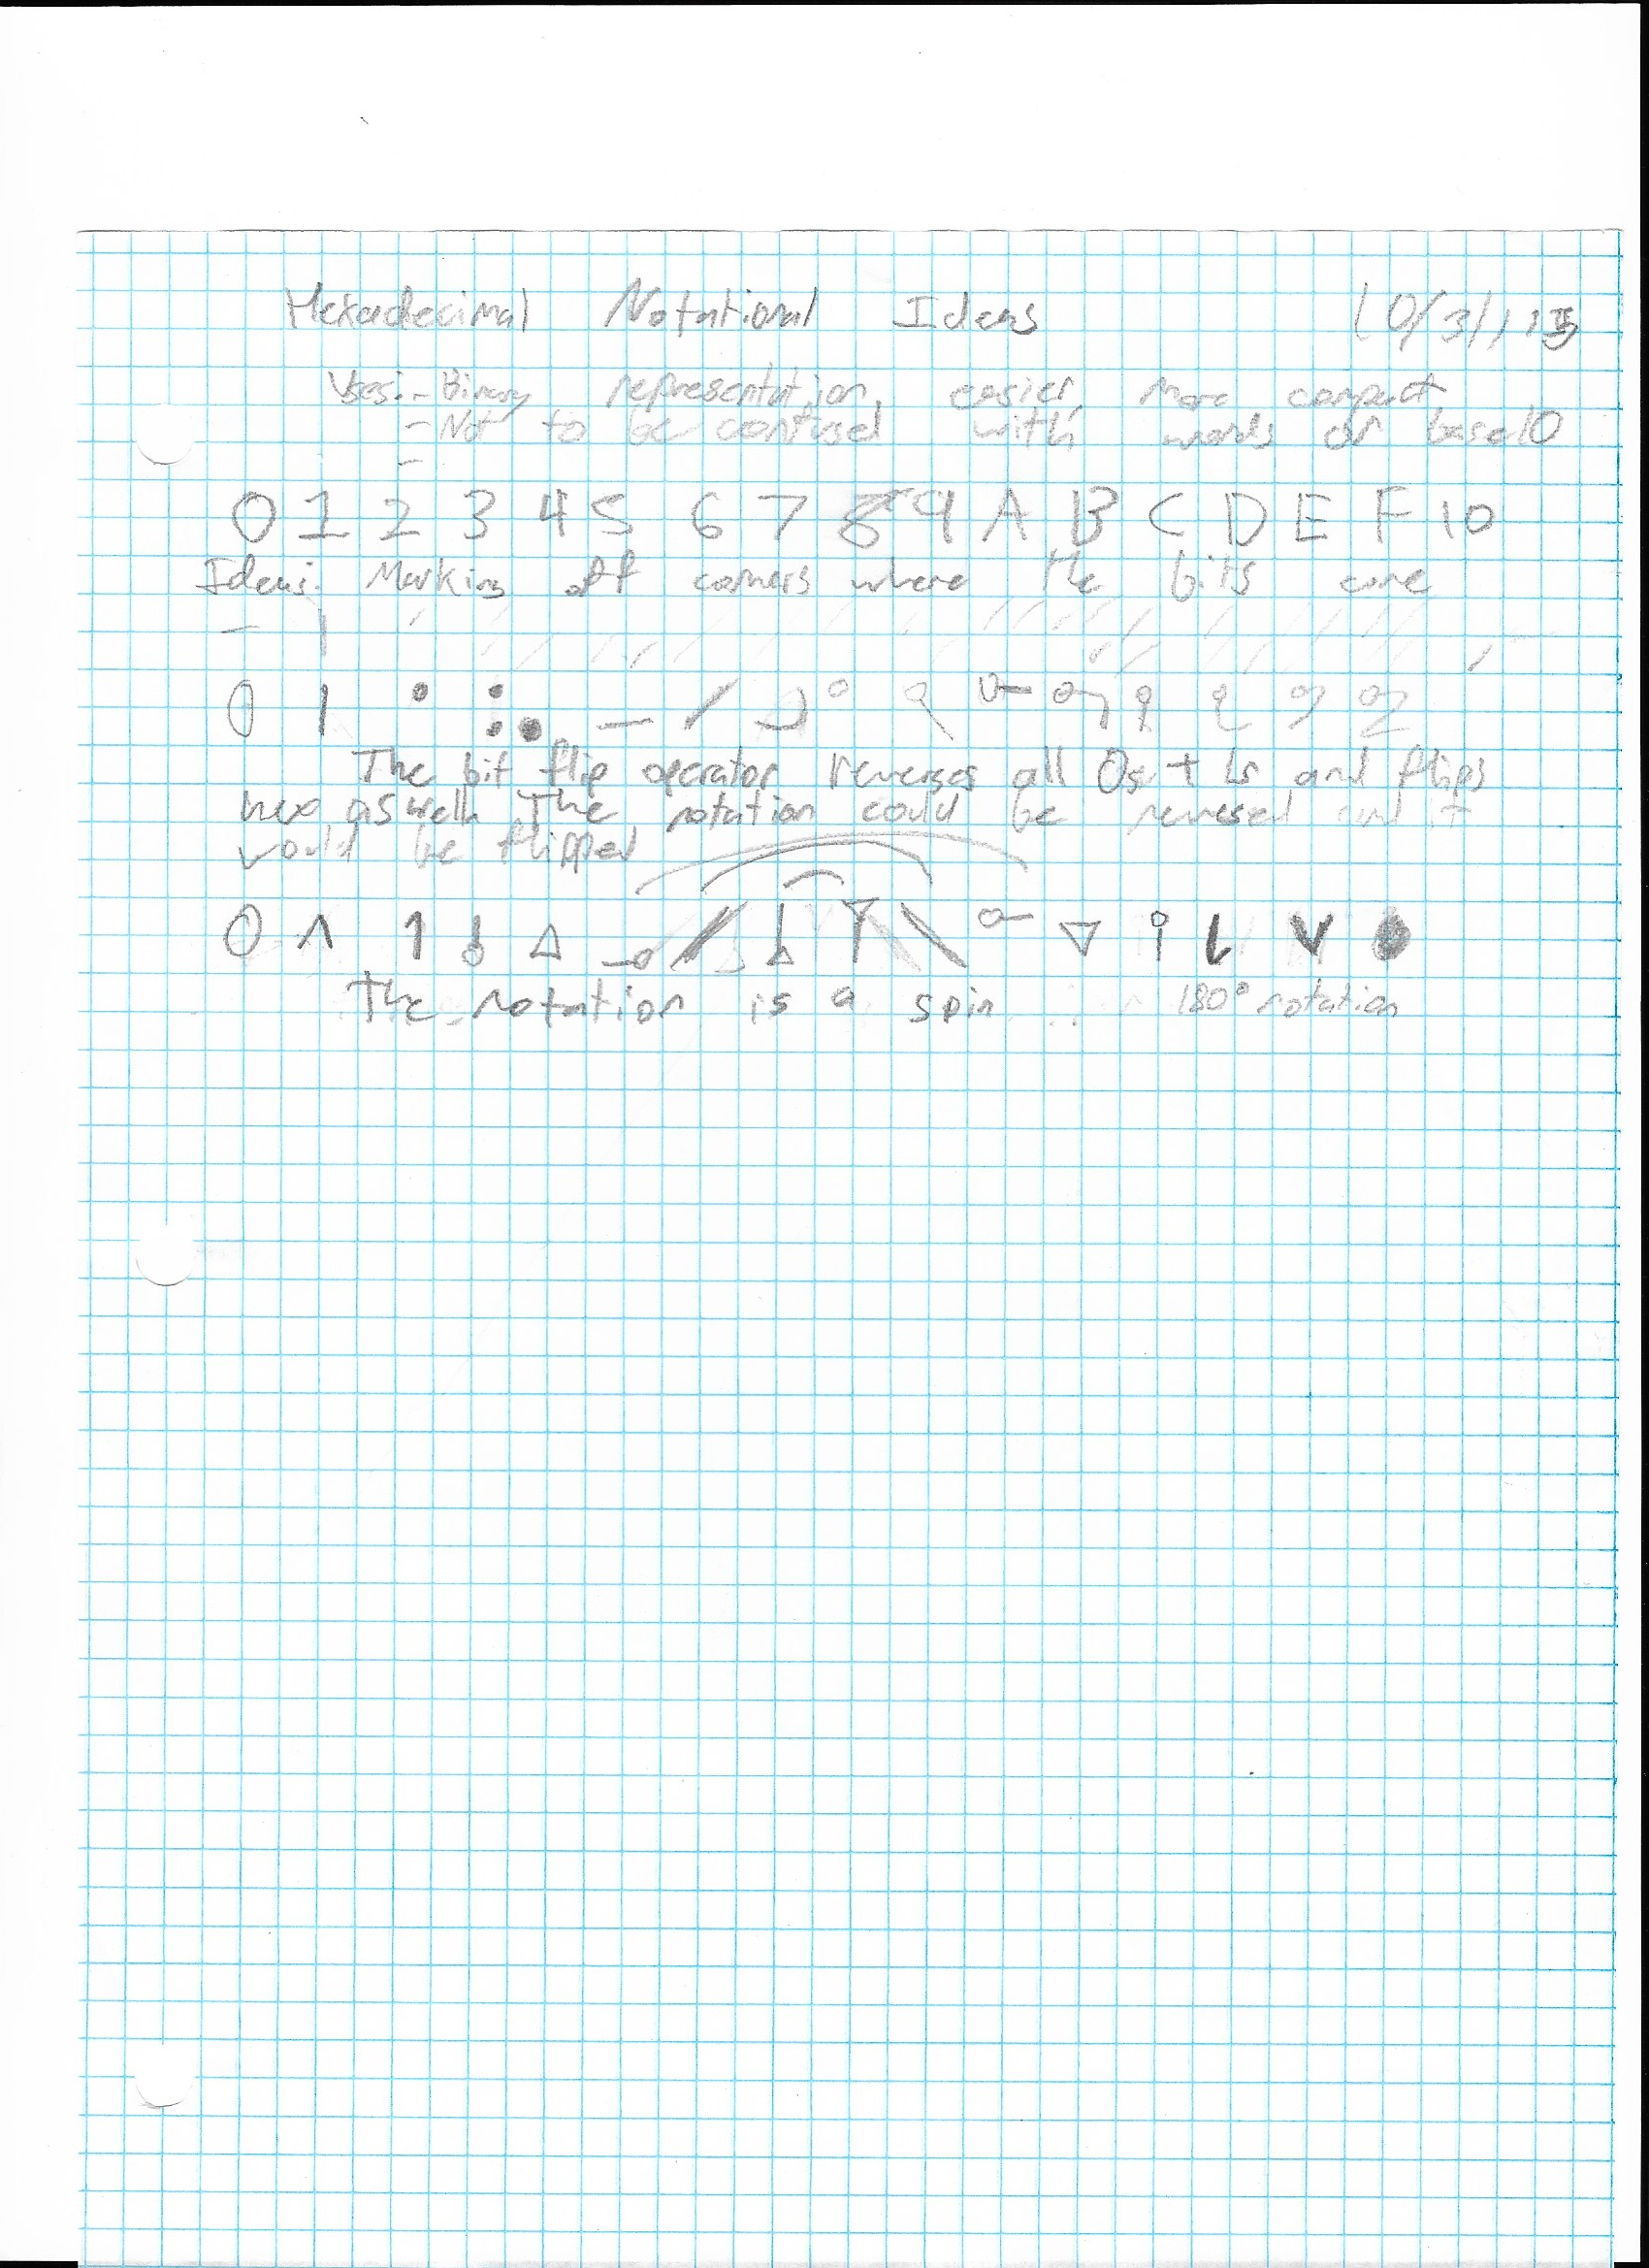 Hexadecimal Notational Ideas 10/31/13
Uses: - Binary representation, easier, more compact
- Not to be confused with words or base 10
-
0 1 2 3 4 5 6 7 8 9 A B C D E F 10
Ideas: Marking off corners where the bits are
0 1
The bit flip operator reverses all 0s + 1s and flips
hex as well. The notation could be reversed and it
would be flipped
0
The notation is a spin 180° rotation